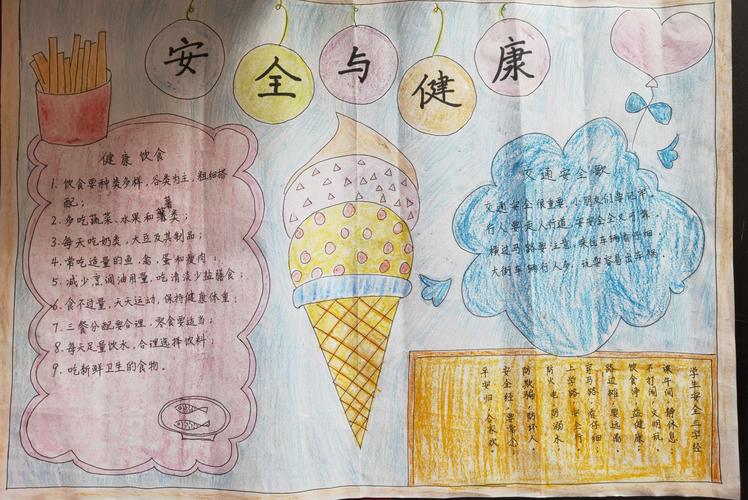 安全与健康
健康饮食
1. 饮食要种类多样,谷类为主,粗细搭
配;
2. 多吃蔬菜、水果和薯类;
3. 每天吃奶类、大豆及其制品;
4. 常吃适量的鱼、禽、蛋和瘦肉;
5. 减少烹调油用量,吃清淡少盐膳食;
6. 食不过量,天天运动,保持健康体重;
7. 三餐分配要合理,零食要适当;
8. 每天足量饮水,合理选择饮料;
9. 吃新鲜卫生的食物。
交通安全歌
交通安全很重要,小朋友们要记牢
行人要走人行道,安安全全又可靠
横过马路要注意,来往车辆看仔细
大街车辆行人多,玩耍容易出车祸。
学生安全三字经
课午间,静休息,
不打闹,文明玩,
饮食净,益健康,
路边摊,要远离,
穿马路,看仔细,
上学路,安全行,
防火电,防溺水,
防欺骗,防坏人,
安全经,要常念,
早安归,合家欢。